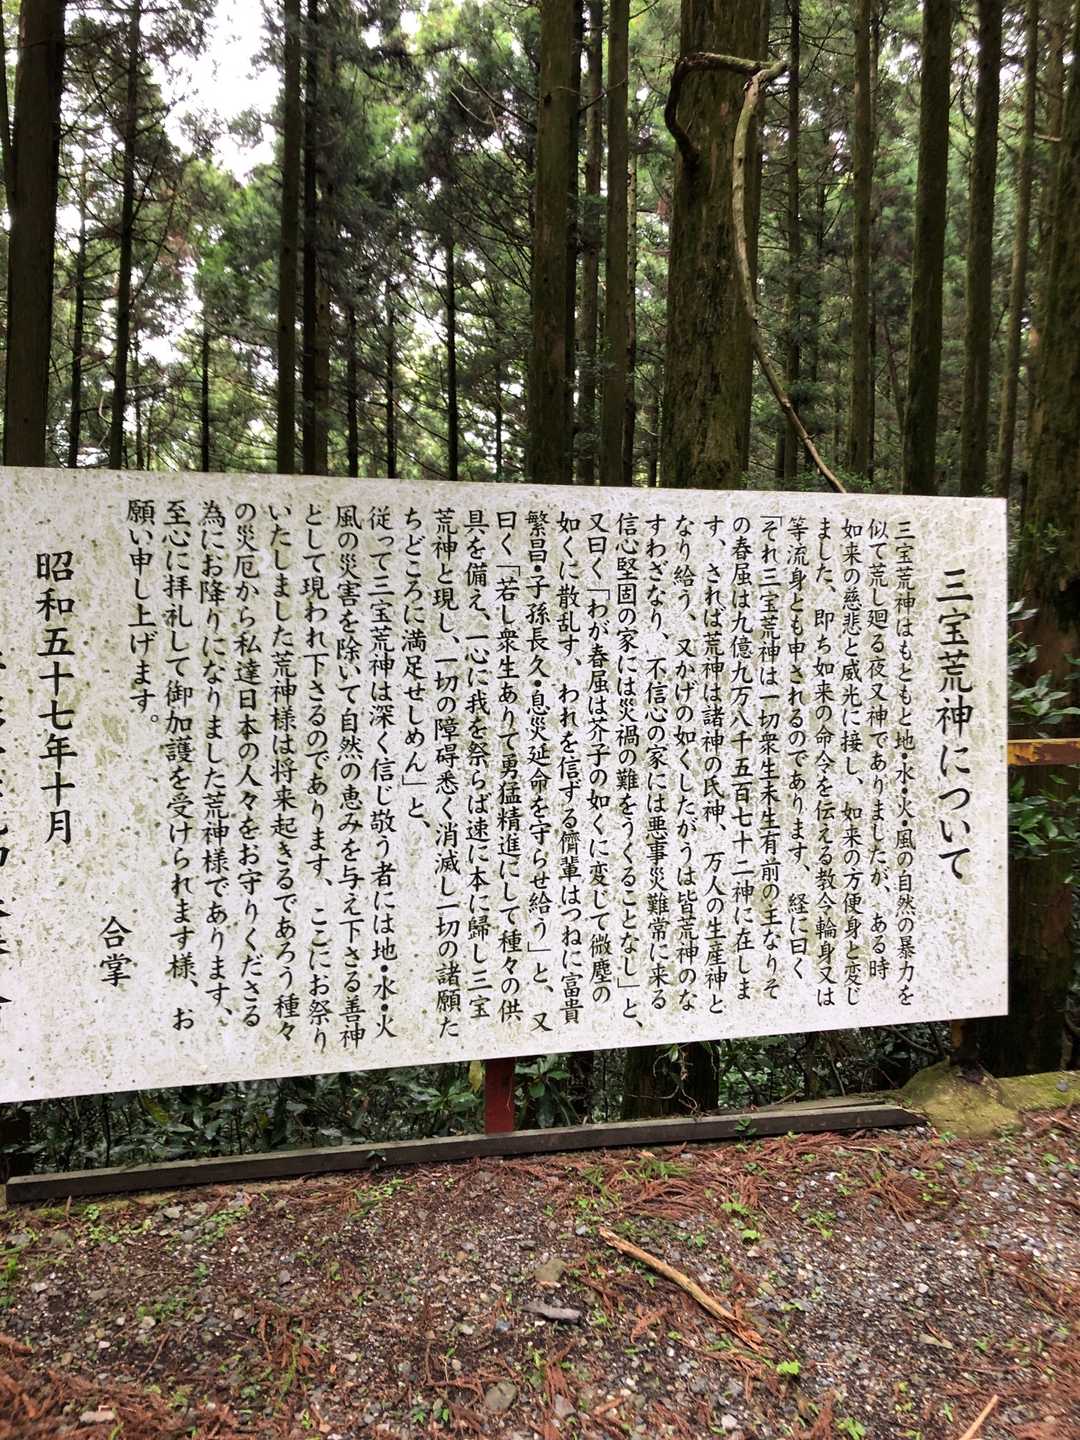 三宝荒神について
三宝荒神はもともと地・水・火・風の自然の暴力を
似て荒し廻る夜叉神でありましたが、ある時
如来の慈悲と威光に接し、如来の方便身と変じ
ました、即ち如来の命令を伝える教令輪身又は
等流身とも申されるのであります、経に曰く
「それ三宝荒神は一切衆生未生有前の王なりそ
の眷属は九億九万八千五百七十二神に在しま
す、されば荒神は諸神の氏神、万人の生産神と
なり給う、又かげの如くしたがうは皆荒神のな
すわざなり、不信心の家には悪事災難常に来る
信心堅固の家には災禍の難をうくることなし」と、
又曰く「わが眷属は芥子の如くに変じて微塵の
如くに散乱す、われを信ずる儕輩はつねに富貴
繁昌・子孫長久・息災延命を守らせ給う」と、又
曰く「若し衆生ありて勇猛精進にして種々の供
具を備え、一心に我を祭らば速に本に歸し三宝
荒神と現し、一切の障碍悉く消滅し一切の諸願た
ちどころに満足せしめん」と、
従って三宝荒神は深く信じ敬う者には地・水・火
風の災害を除いて自然の恵みを与え下さる善神
として現われ下さるのであります、ここにお祭り
いたしました荒神様は将来起きるであろう種々
の災厄から私達日本の人々をお守りくださる
為にお降りになりました荒神様であります、
至心に拝礼して御加護を受けられます様、お
願い申し上げます。
合掌
昭和五十七年十月